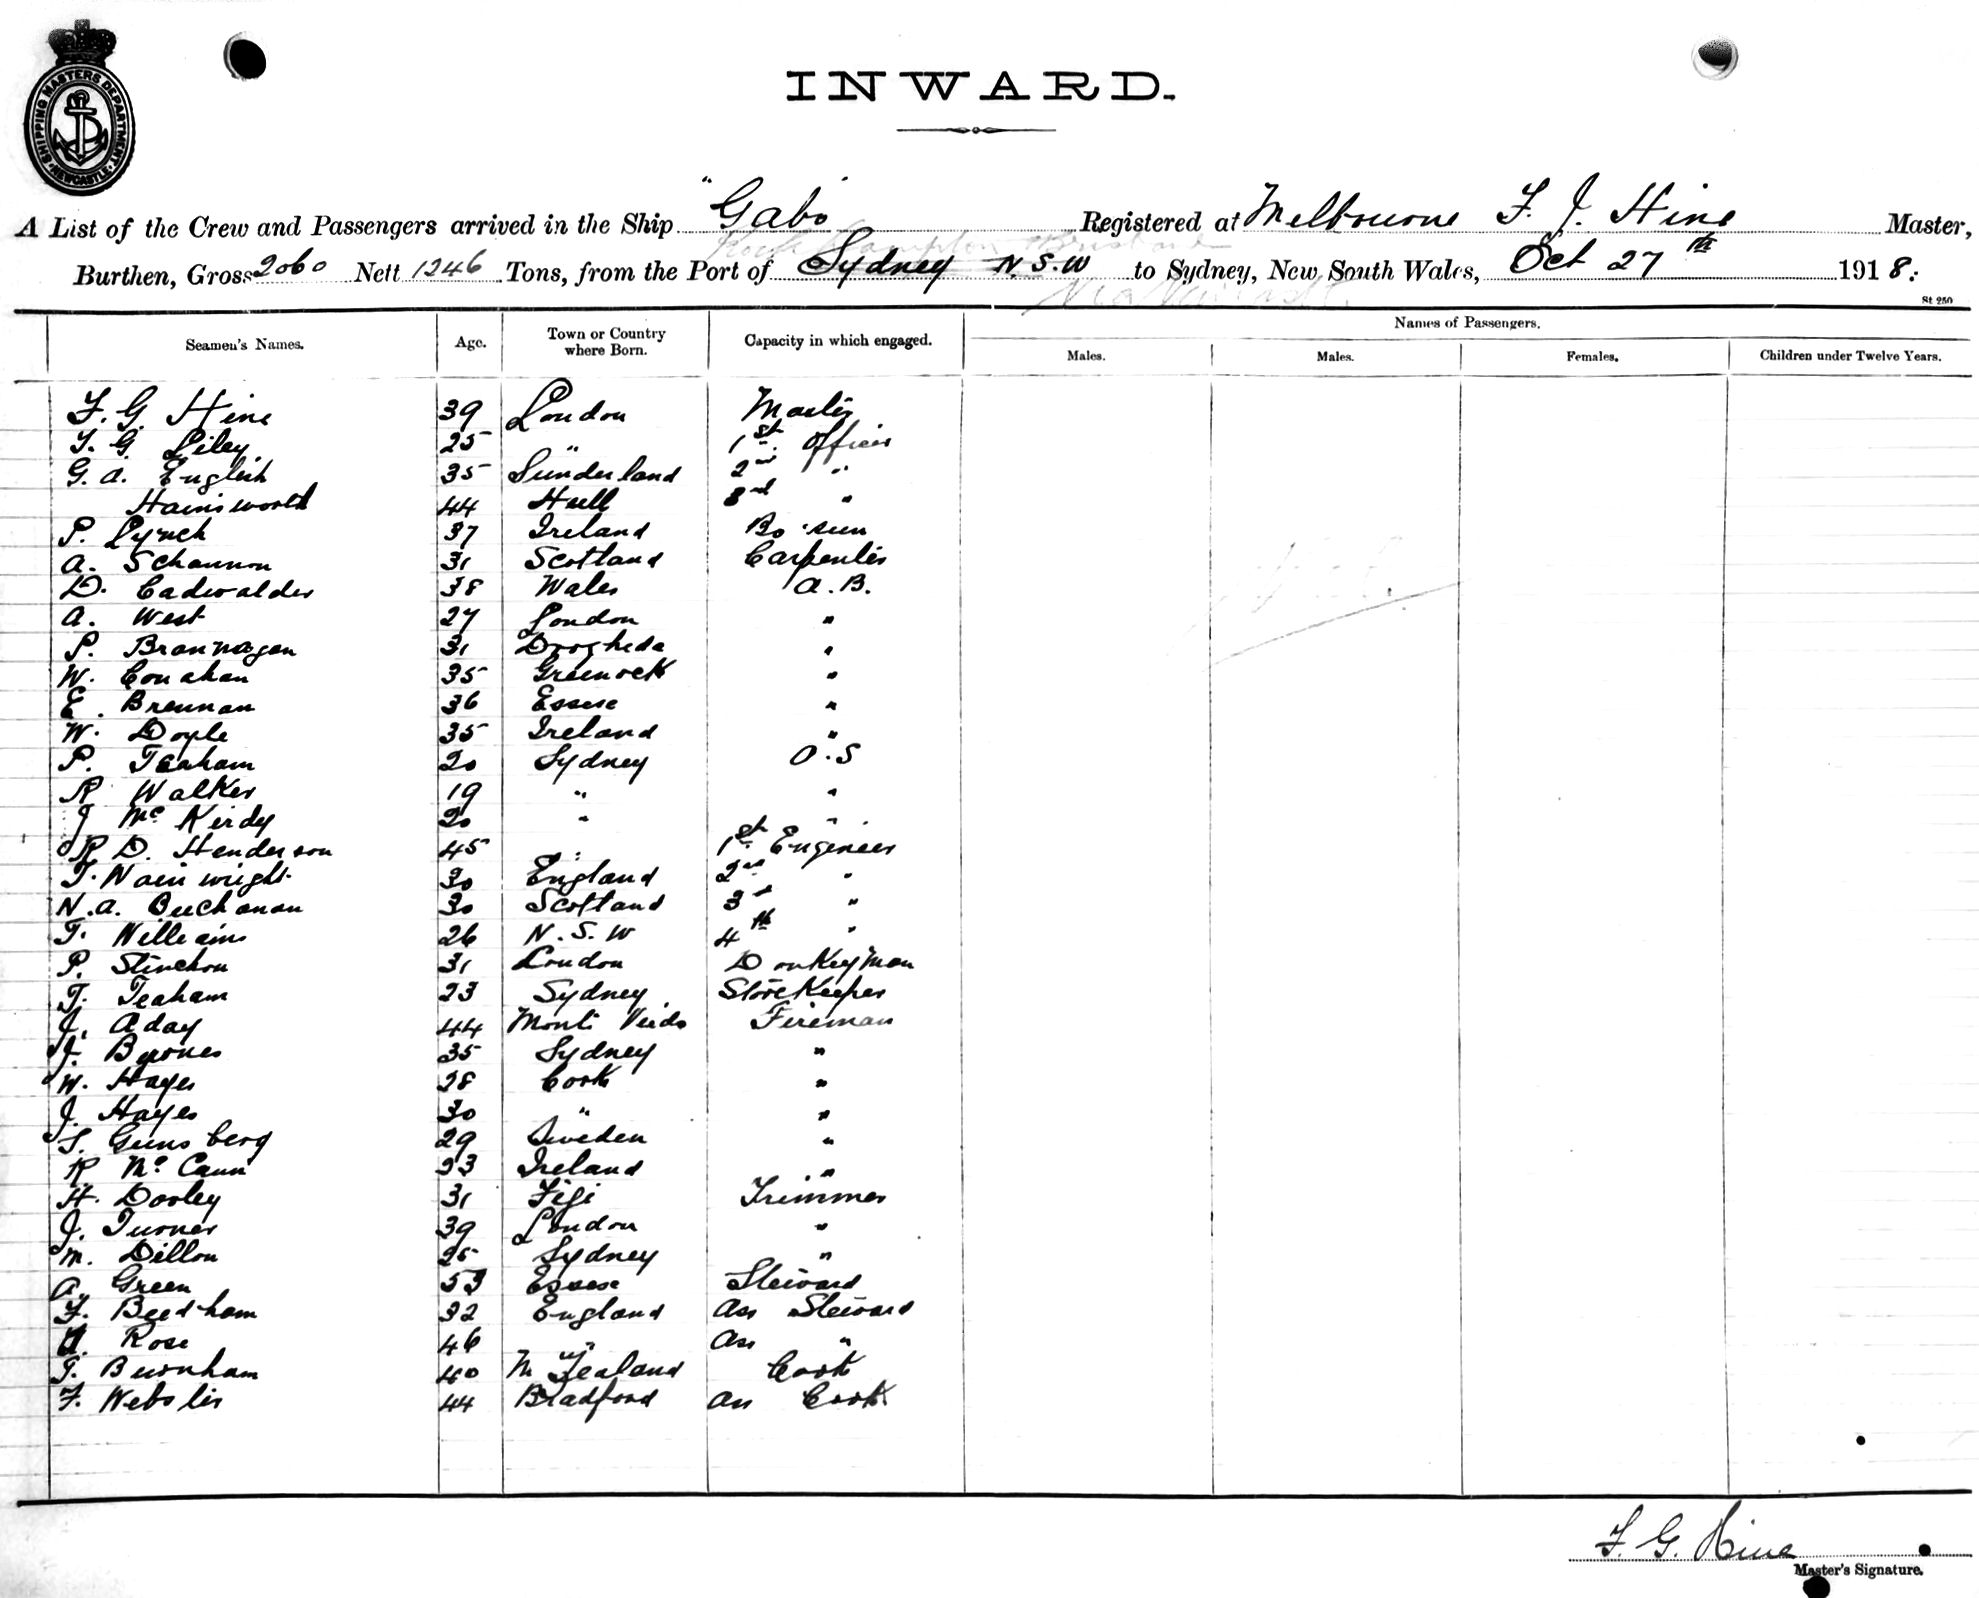 SHIPPING MASTERS DEPARTMENT NEWCASTLE
INWARD.
A List of the Crew and Passengers arrived in the Ship "Gabo" Registered at Melbourne F. J. Hine Master,
Burthen, Gross 2060 Nett 1246 Tons, from the Port of Sydney N.S.W to Sydney, New South Wales, Oct 27th 1918.
St 250
Seamen's Names. Age. Town or Country where Born. Capacity in which engaged. Names of Passengers.
Males. Males. Females. Children under Twelve Years.
F. G. Hine 39 London Master
T. G. Liley 25 " 1st Officer
G. A. English 35 Sunderland 2nd "
Hainsworth 44 Hull 3rd "
P. Lynch 37 Ireland Bo'sun
A. Schannon 31 Scotland Carpenter
D. Cadwalder 38 Wales A.B.
A. West 27 London "
P. Brannagan 31 Drogheda "
W. Conahan 35 Greenock "
E. Brennan 36 Essex "
W. Doyle 35 Ireland "
P. Teaham 20 Sydney O.S
R Walker 19 " "
J McKirdy 20 " "
R D. Henderson 45 " 1st Engineer
T. Wainwright 30 England 2nd "
N.A. Buchanan 30 Scotland 3rd "
T. Williams 26 N.S.W 4th "
P. Stinchon 31 London Donkeyman
T. Teaham 23 Sydney Storekeeper
J. Aday 44 Monti Virdo Fireman
J. Byrnes 35 Sydney "
W. Hayes 28 Cork "
J. Hayes 30 " "
S. Gunsberg 29 Sweden "
R McCann 23 Ireland "
H. Dooley 31 Figi Trimmer
J. Turner 39 London "
M. Dillon 25 Sydney "
A. Green 53 Essex Steward
F. Beedham 32 England Ass Steward
Rose 46 " Ass "
T. Burnham 40 N Zealand Cook
F. Webster 44 Bradford Ass Cook
F. G. Hine
Master's Signature.